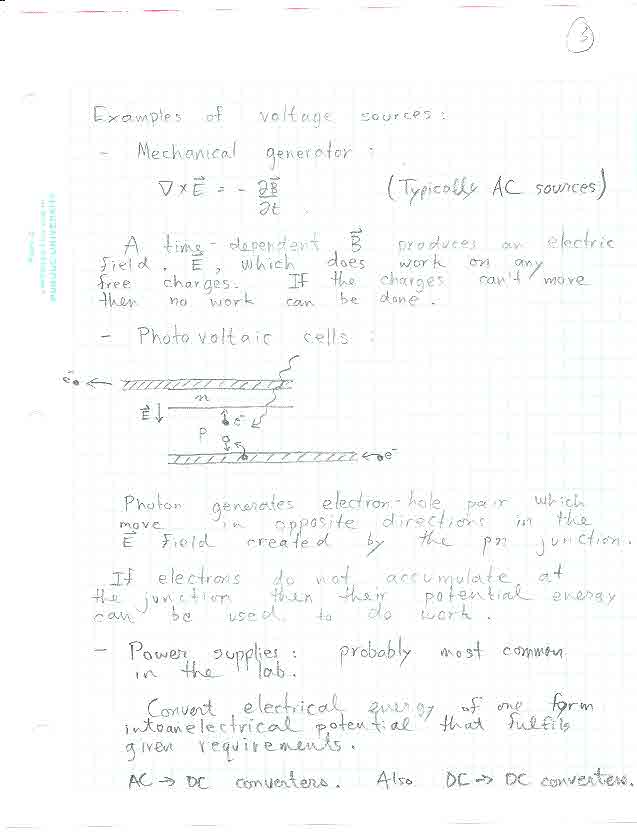 3
Examples of voltage sources:
- Mechanical generator:
∇ × E⃗ = - ∂B⃗/∂t (Typically AC sources)
A time-dependent B⃗ produces an electric
field, E⃗, which does work on any
free charges. If the charges can't move
then no work can be done.
- Photovoltaic cells:
e⁻
n
E⃗
e⁻
p
e⁻
Photon generates electron-hole pair which
move in opposite directions in the
E⃗ field created by the pn junction.
If electrons do not accumulate at
the junction then their potential energy
can be used to do work.
- Power supplies: probably most common
in the lab.
Convert electrical energy of one form
into an electrical potential that fulfils
given requirements.
AC → DC converters. Also DC → DC converters.
PURDUE UNIVERSITY